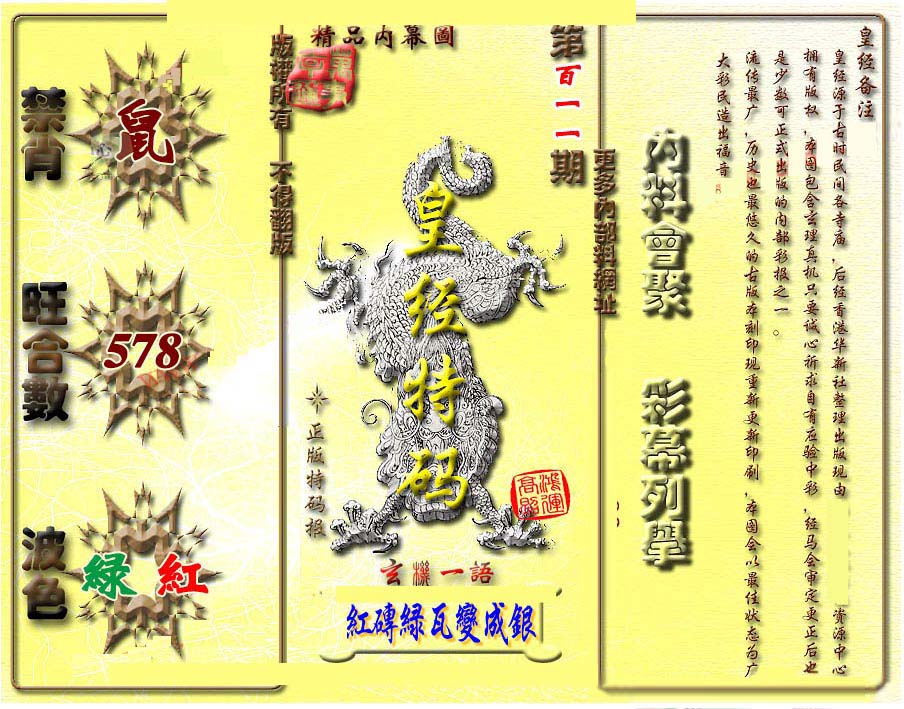 禁肖
鼠
旺合數
578
波色
綠 紅
版權所有 不得翻版
精品内幕圖
第百一一期
皇经特码
正版特码报
鴻運高照
玄機一語
紅磚綠瓦變成銀
更多内部料網址
内料會聚 彩幕列舉
皇经备注
皇经源于古时民间各寺庙,后经香港华新社整理出版现由 资源中心
拥有版权,本图包含玄理真机只要诚心祈求自有应验中彩,经马会审定更正后也
是少数可正式出版的内部彩报之一。
流传最广,历史也最悠久的古版本刻印现重新更新印刷,本图会以最佳状态为广
大彩民造出福音